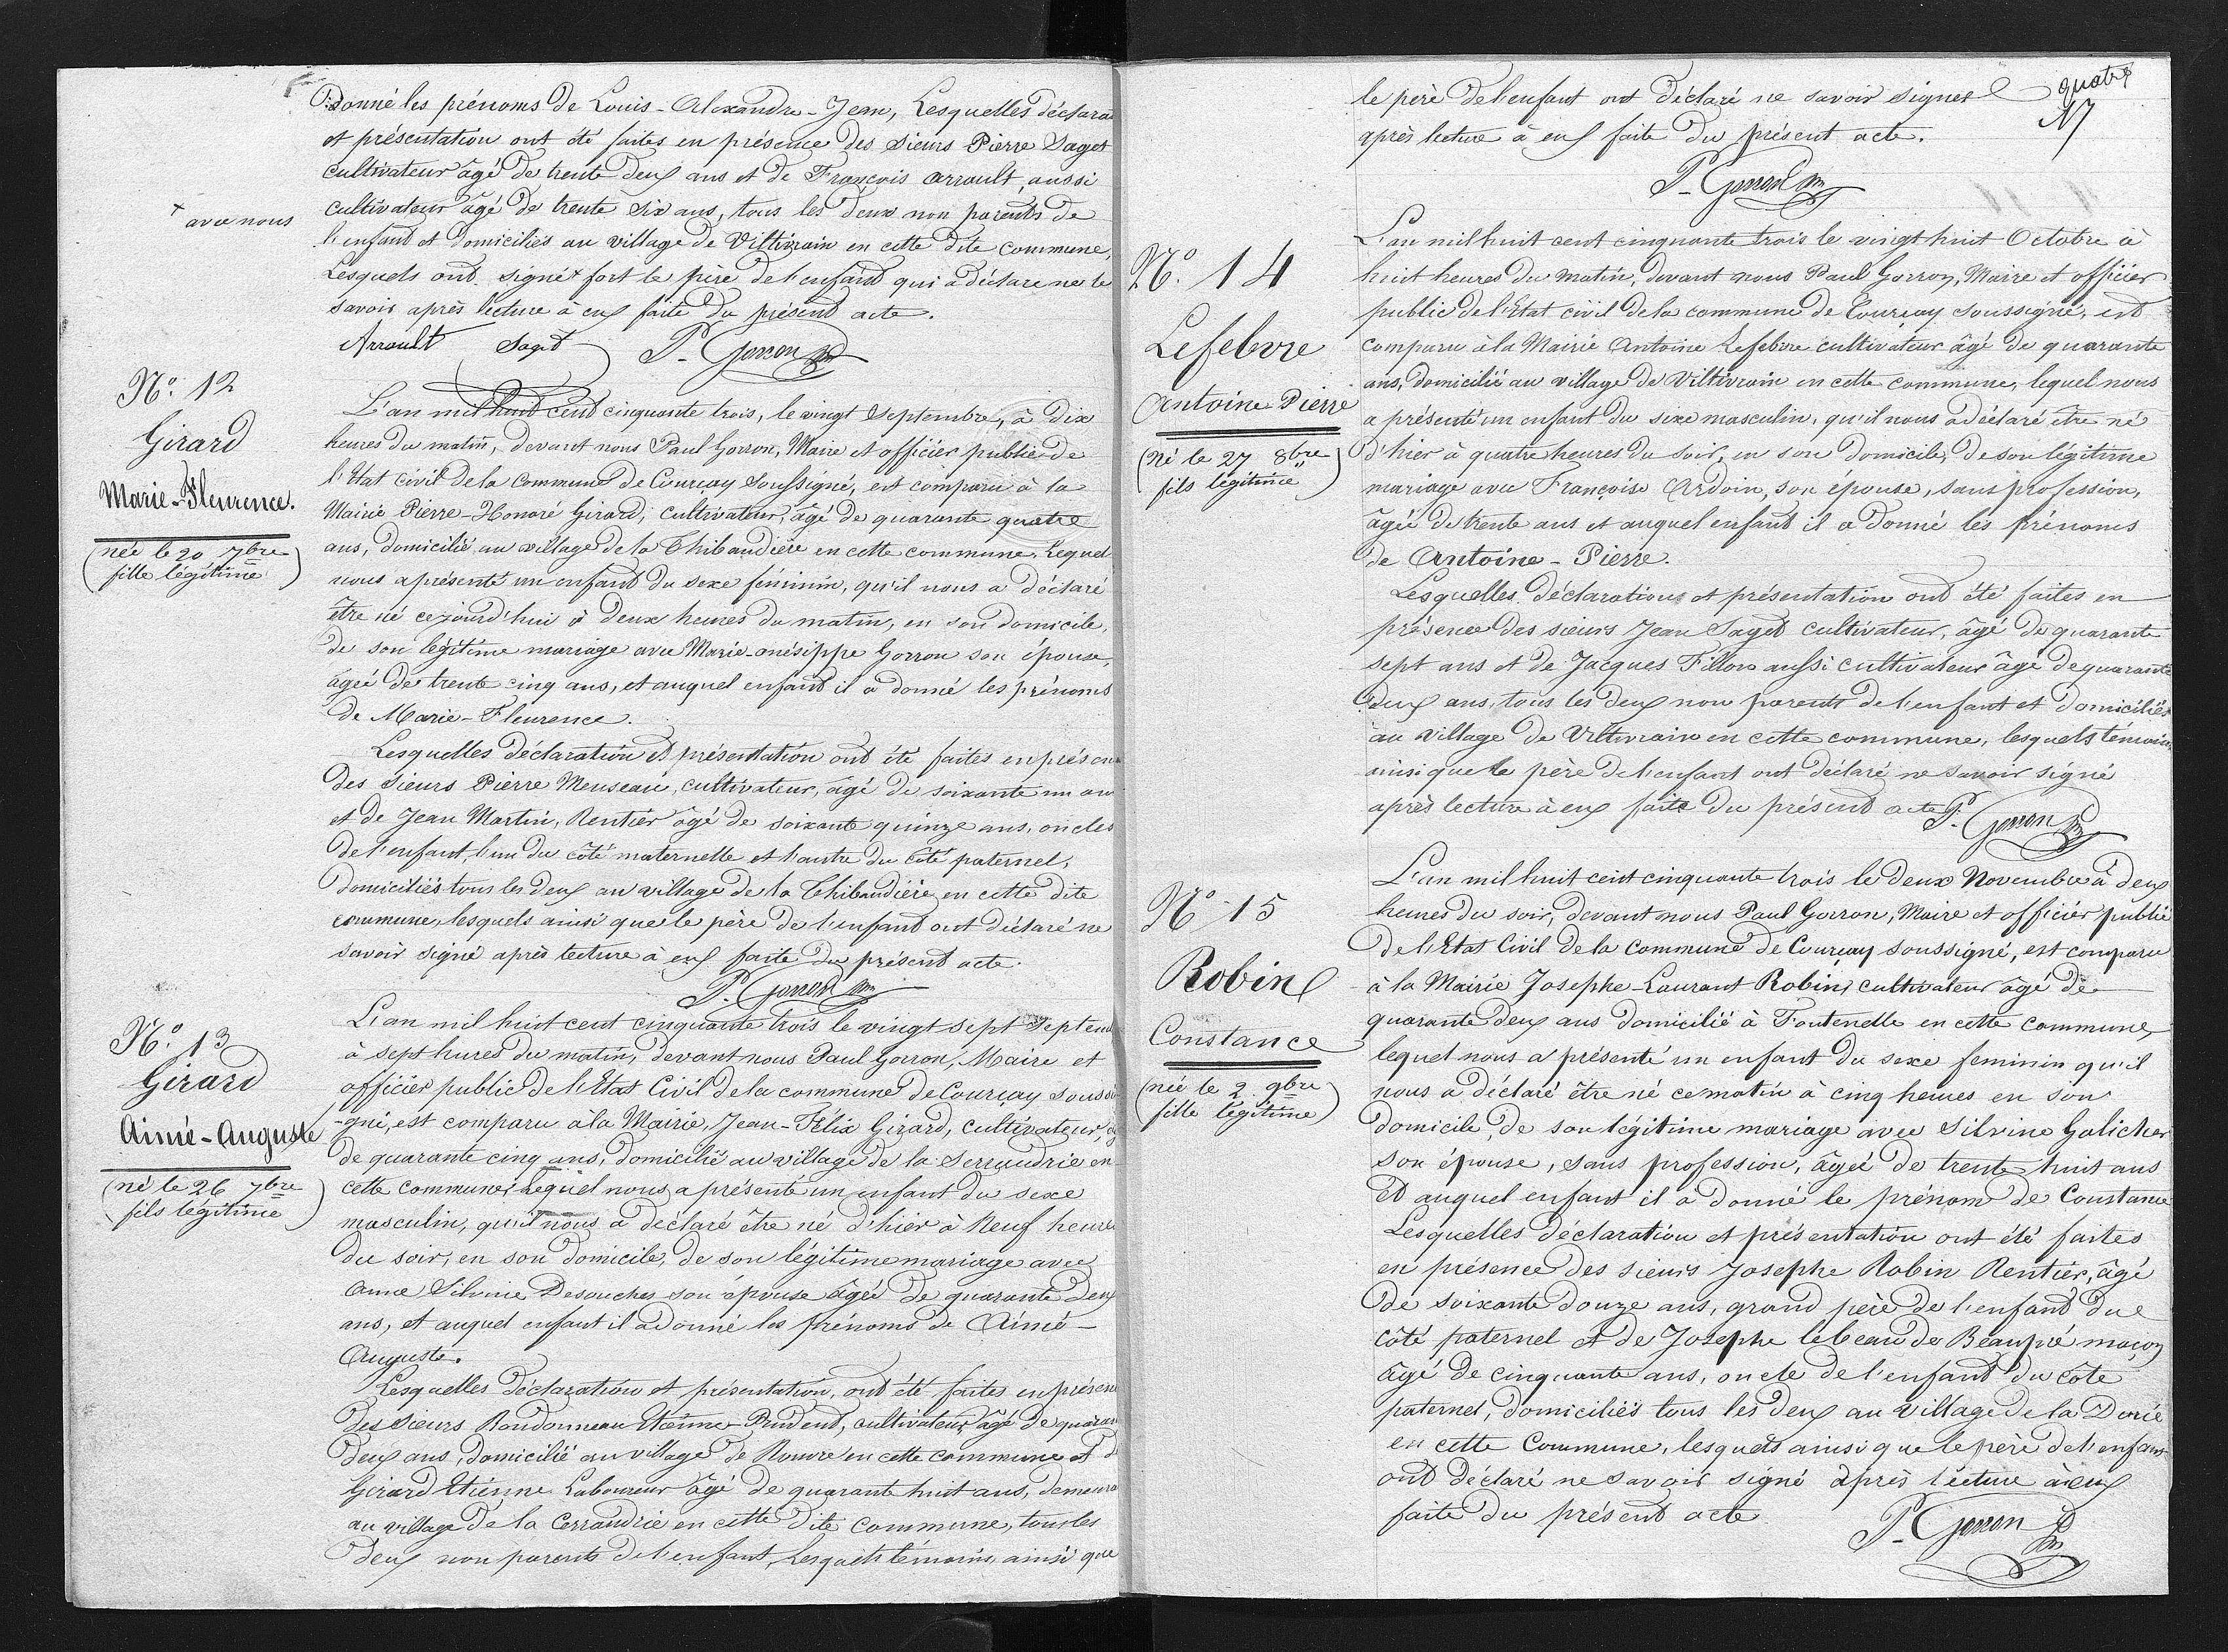 Donné les prénoms de Louis-Alexandre-Jean, Lesquelles déclara
et présentation ont été faites en présence des sieurs Pierre Saget
cultivateur âgé de trente deux ans et de François arrault, aussi
+ avec nous
cultivateur âgé de trente six ans, tous les deux non parents de
l'enfant et domiciliés au village de Viltivrain en cette dite commune,
Lesquels ont signé + fort le père de l'enfant qui a déclaré ne le
savoir après lecture à eux faite du présent acte.
Arrault Saget P. Gorron
N.º 12
Girard
Marie-Fleurence.
(née le 20 7bre
fille légitime)
L'an mil huit cent cinquante trois, le vingt Septembre, à dix
heures du matin, devant nous Paul Gorron, Maire et officier public de
l'Etat civil de la commune de Courçay soussigné, est comparu à la
Mairie Pierre-Honoré Girard, cultivateur, âgé de quarante quatre
ans, domicilié au village de la Thibaudière en cette commune, Lequel
nous a présenté un enfant du sexe féminin, qu'il nous a déclaré
être né cejourd'hui à deux heures du matin, en son domicile,
de son légitime mariage avec Marie-onésippe Gorron son épouse,
âgée de trente cinq ans, et auquel enfant il a donné les prénoms
de Marie-Fleurence.
Lesquelles déclaration et présentation ont été faites en présen
des sieurs Pierre Meuseau, cultivateur, âgé de soixante un an
et de Jean Martin, Rentier âgé de soixante quinze ans, oncles
de l'enfant, l'un du côté maternelle et l'autre du côté paternel,
domiciliés tous les deux au village de la Thibaudière en cette dite
commune, lesquels ainsi que le père de l'enfant ont déclaré ne
savoir signé après lecture à eux faite du présent acte.
P. Gorron
N.º 13
Girard
Aimé-Auguste
(né le 26 7bre
fils légitime)
L'an mil huit cent cinquante trois le vingt sept Septem
à sept hures du matin, devant nous Paul Gorron, Maire et
officier public de l'Etat Civil de la commune de Courçay soussi
-gné, est comparu à la Mairie, Jean-Félix Girard, cultivateur,
de quarante cinq ans, domicilié au village de la Serraudrie en
cette commune, Lequel nous a présenté un enfant du sexe
masculin, qu'il nous a déclaré être né d'hier à Neuf heure
du soir, en son domicile, de son légitime mariage avec
Anne Silvine Desouches son épouse âgée de quarante deux
ans, et auquel enfant il a donné les prénoms de Aimé-
Auguste.
Lesquelles déclaration et présentation, ont été faites en présen
des sieurs Randonneau Etienne-Prudent, cultivateur âgé de quaran
deux ans, domicilié au village de Rouvre en cette commune et d
Girard Etienne Laboureur âgé de quarante huit ans, demeura
au village de la Cerraudrie en cette dite commune, tous les
deux non parents de l'enfant, Lesquels témoins ainsi que
quatre
le père de l'enfant ont déclaré ne savoir signer
après lecture à eux faite du présent acte.
P. Gorron
N.º 14
Lefebvre
Antoine Pierre
(né le 27 8bre
fils légitime)
L'an mil huit cent cinquante trois le vingt huit Octobre à
huit heures du matin, devant nous Paul Gorron, Maire et officier
public de l'Etat civil de la commune de Courçay soussigné, est
comparu à la Mairie Antoine Lefebvre cultivateur âgé de quarante
ans, domicilié au village de Viltivrain en cette commune, lequel nous
a présenté un enfant du sexe masculin, qu'il nous a déclaré être né
d'hier à quatre heures du soir, en son domicile, de son légitime
mariage avec Françoise Ardoin, son épouse, sans profession,
âgée de trente ans et auquel enfant il a donné les prénoms
de Antoine-Pierre.
Lesquelles déclaration et présentation ont été faites en
présence des sieurs Jean Saget cultivateur, âgé de quarante
sept ans et de Jacques Fillon aussi cultivateur âgé de quarante
deux ans, tous les deux non parents de l'enfant et domiciliés
au village de Viltivrain en cette commune, lesquels témoins
ainsi que le père de l'enfant ont déclaré ne savoir signé
après lecture à eux faite du présent acte P. Gorron
Nº 15
Robin
Constance
(née le 2 9bre
fille légitime)
L'an mil huit cent cinquante trois le deux Novembre à deux
heures du soir, devant nous Paul Gorron, Maire et officier public
de l'Etat Civil de la commune de Courçay soussigné, est comparu
à la Mairie Josephe-Laurant Robin, cultivateur âgé de
quarante deux ans domicilié à Fontenelle en cette commune,
lequel nous a présenté un enfant du sexe feminin qu'il
nous a déclaré être né ce matin à cinq heures en son
domicile, de son légitime mariage avec Silvine Galicher
son épouse, sans profession, âgée de trente huit ans
Et auquel enfant il a donné le prénom de Constance
Lesquelles déclaration et présentation ont été faites
en présence des sieurs Josephe Robin Rentier, âgé
de soixante douze ans, grand père de l'enfant du
côté paternel et de Josephe lebeau de Beaupré maçon
âgé de cinquante ans, oncle de l'enfant du côté
paternel, domiciliés tous les deux au village de la Dorée
en cette Commune, lesquels ainsi que le père de l'enfant
ont déclaré ne savoir signé après lecture à eux
faite du présent acte
P. Gorron